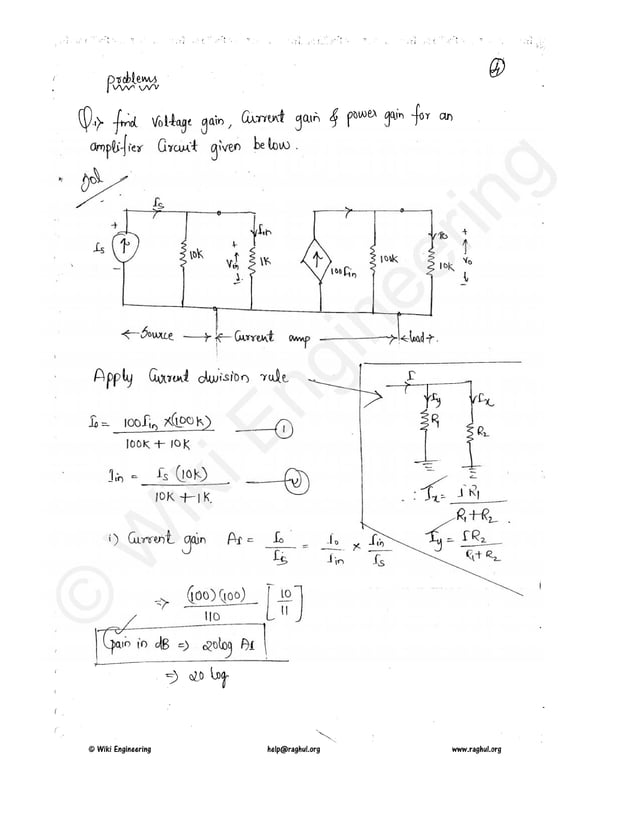 4
Problems
Q.1) find Voltage gain, Current gain & power gain for an
amplifier Circuit given below.
Sol
Is
Is
+
-
10K
+
Vin
-
Iin
1K
100Iin
100K
Io
10K
+
Vo
-
Source
Current amp
load
Apply Current division rule
I
Iy
Ix
R1
R2
Io = 100Iin x(100K) / 100K + 10K — 1
Iin = Is (10K) / 10K + 1K — 2
∴ Ix = IR1 / R1+R2
Iy = IR2 / R1+R2
i) Current gain AI = Io/Is = Io/Iin x Iin/Is
=> (100)(100) / 110 [10/11]
Gain in dB => 20log AI
=> 20 log
© Wiki Engineering
© Wiki Engineering help@raghul.org www.raghul.org